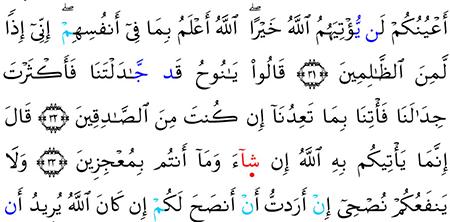 أَعْيُنُكُمْ لَن يُّؤْتِيَهُمُ ٱللَّهُ خَيْرًا ۖ ٱللَّهُ أَعْلَمُ بِمَا فِىٓ أَنفُسِهِمْ ۖ إِنِّىٓ إِذًا
لَّمِنَ ٱلظَّـٰلِمِينَ ﴿٣١﴾ قَالُوا۟ يَـٰنُوحُ قَد جَّـٰدَلْتَنَا فَأَكْثَرْتَ
جِدَٰلَنَا فَأْتِنَا بِمَا تَعِدُنَآ إِن كُنتَ مِنَ ٱلصَّـٰدِقِينَ ﴿٣٢﴾ قَالَ
إِنَّمَا يَأْتِيكُم بِهِ ٱللَّهُ إِن شَآءَ وَمَآ أَنتُم بِمُعْجِزِينَ ﴿٣٣﴾ وَلَا
يَنفَعُكُمْ نُصْحِىٓ إِنْ أَرَدتُّ أَنْ أَنصَحَ لَكُمْ إِن كَانَ ٱللَّهُ يُرِيدُ أَن